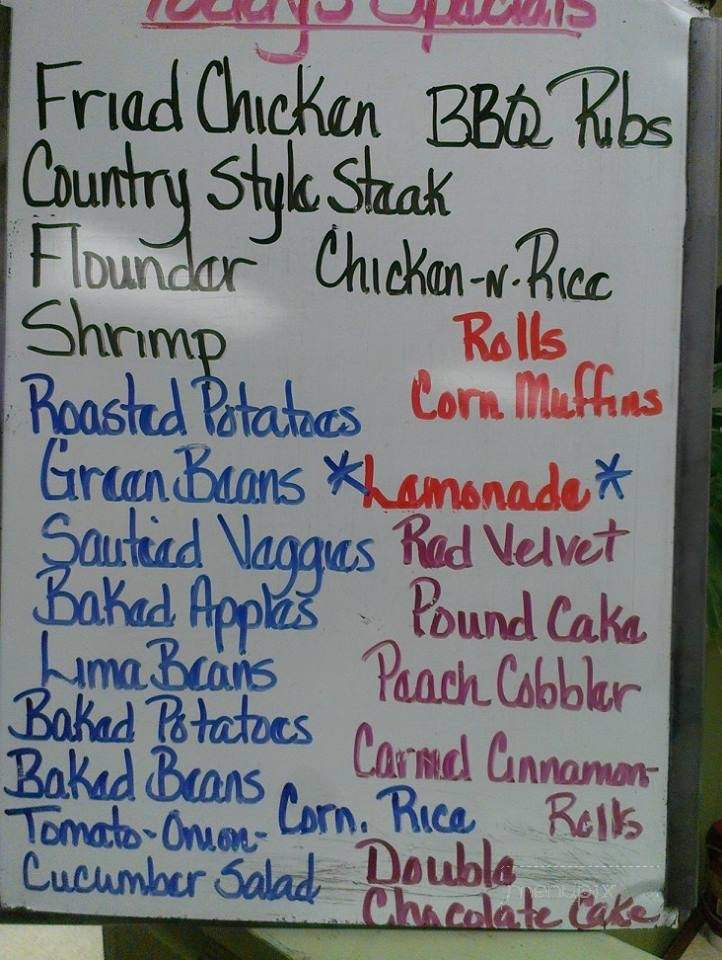 Today's Specials
Fried Chicken BBQ Ribs
Country Style Steak
Flounder Chicken-N-Rice
Shrimp Rolls
Roasted Potatoes Corn Muffins
Green Beans *Lemonade*
Sauteed Veggies Red Velvet
Baked Apples Pound Cake
Lima Beans Peach Cobbler
Baked Potatoes
Baked Beans Carmel Cinnamon-
Tomato-Onion- Corn. Rice Rolls
Cucumber Salad Double
Chocolate Cake
menupix